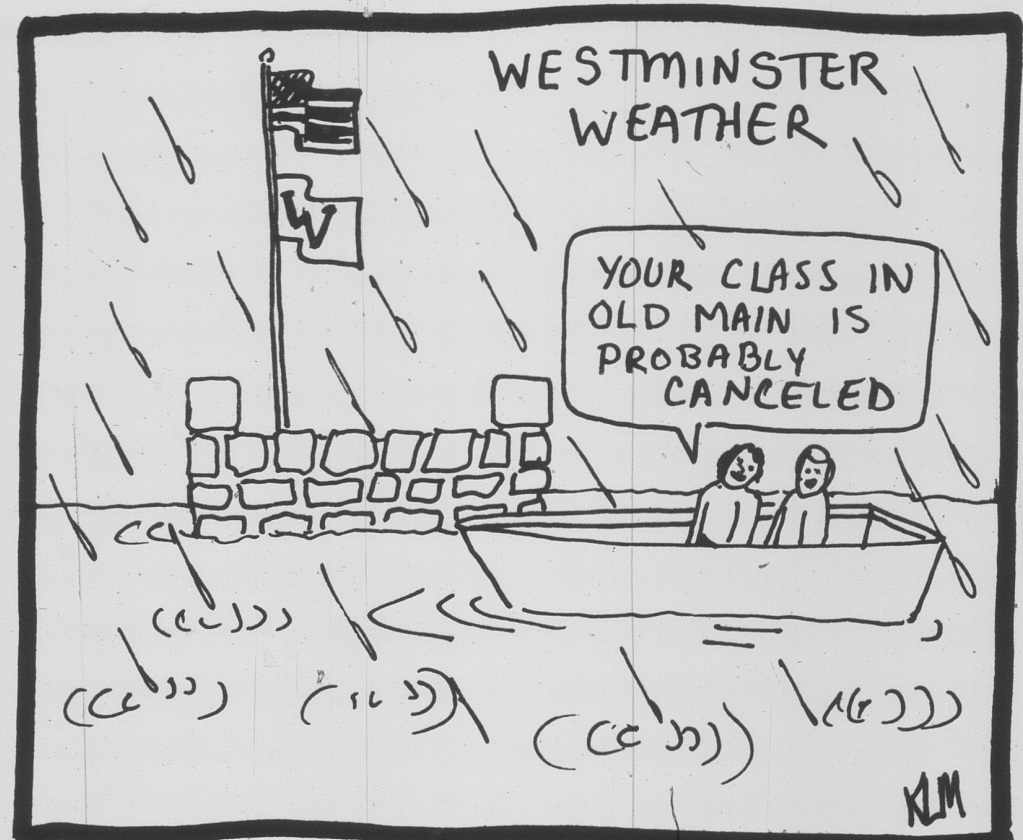 WESTMINSTER
WEATHER
W
YOUR CLASS IN
OLD MAIN IS
PROBABLY
CANCELED
KLM